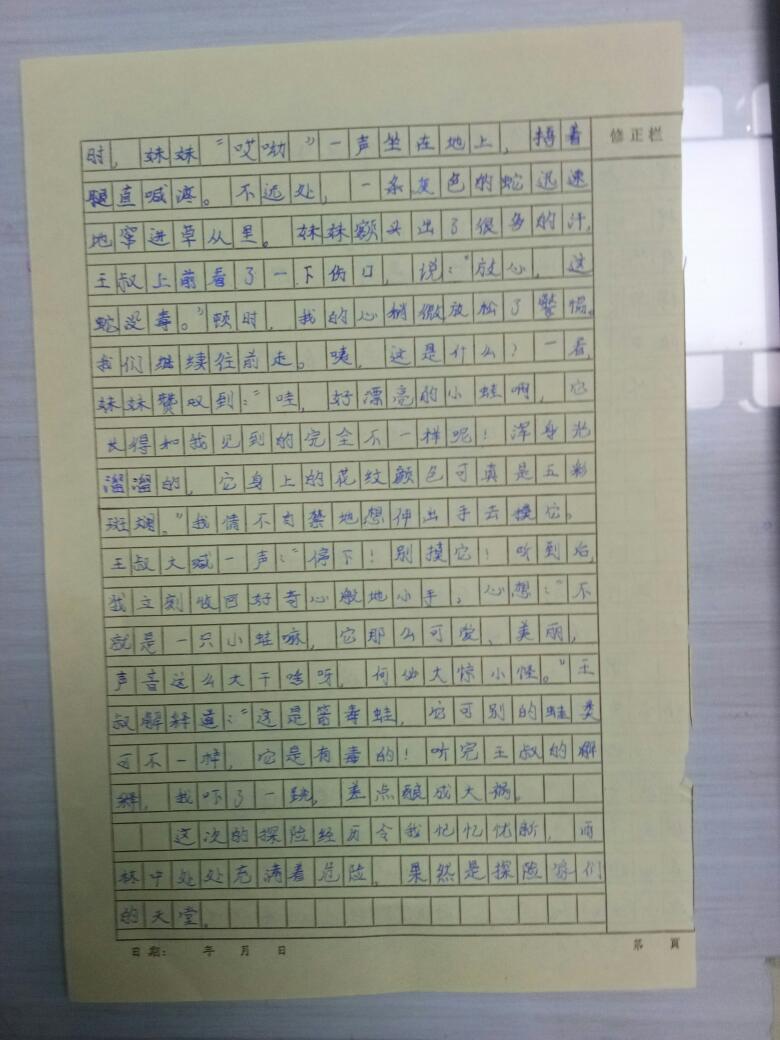 修正栏
时，妹妹“哎呦”一声坐在地上，捂着
腿直喊疼。不远处，一条灰色的蛇迅速
地窜进草从里。妹妹额头出了很多的汗，
王叔上前看了一下伤口，说：“放心，这
蛇没毒。”顿时，我的心稍微放松了警惕。
我们继续往前走。咦，这是什么？一看，
妹妹赞叹到：“哇，好漂亮的小蛙啊，它
长得和我见到的完全不一样呢！浑身光
溜溜的，它身上的花纹颜色可真是五彩
斑斓。”我情不自禁地想伸出手去摸它。
王叔大喊一声：“停下！别摸它！听到后，
我立刻收回好奇心般地小手，心想：“不
就是一只小蛙嘛，它那么可爱、美丽，
声音这么大干啥呀，何必大惊小怪。”王
叔解释道：“这是箭毒蛙，它可别的蛙类
可不一样，它是有毒的！听完王叔的解
释，我吓了一跳，差点酿成大祸。
这次的探险经历令我忆忆忧新，雨
林中处处充满着危险，果然是探险家们
的天堂。
日期：　年　月　日　第　頁